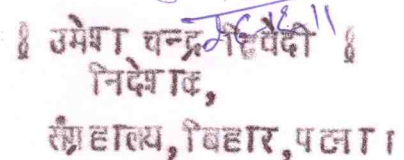 ॥ उमेश चन्द्र द्विवेदी ॥
निदेशक,
संग्रहालय, बिहार, पटना।